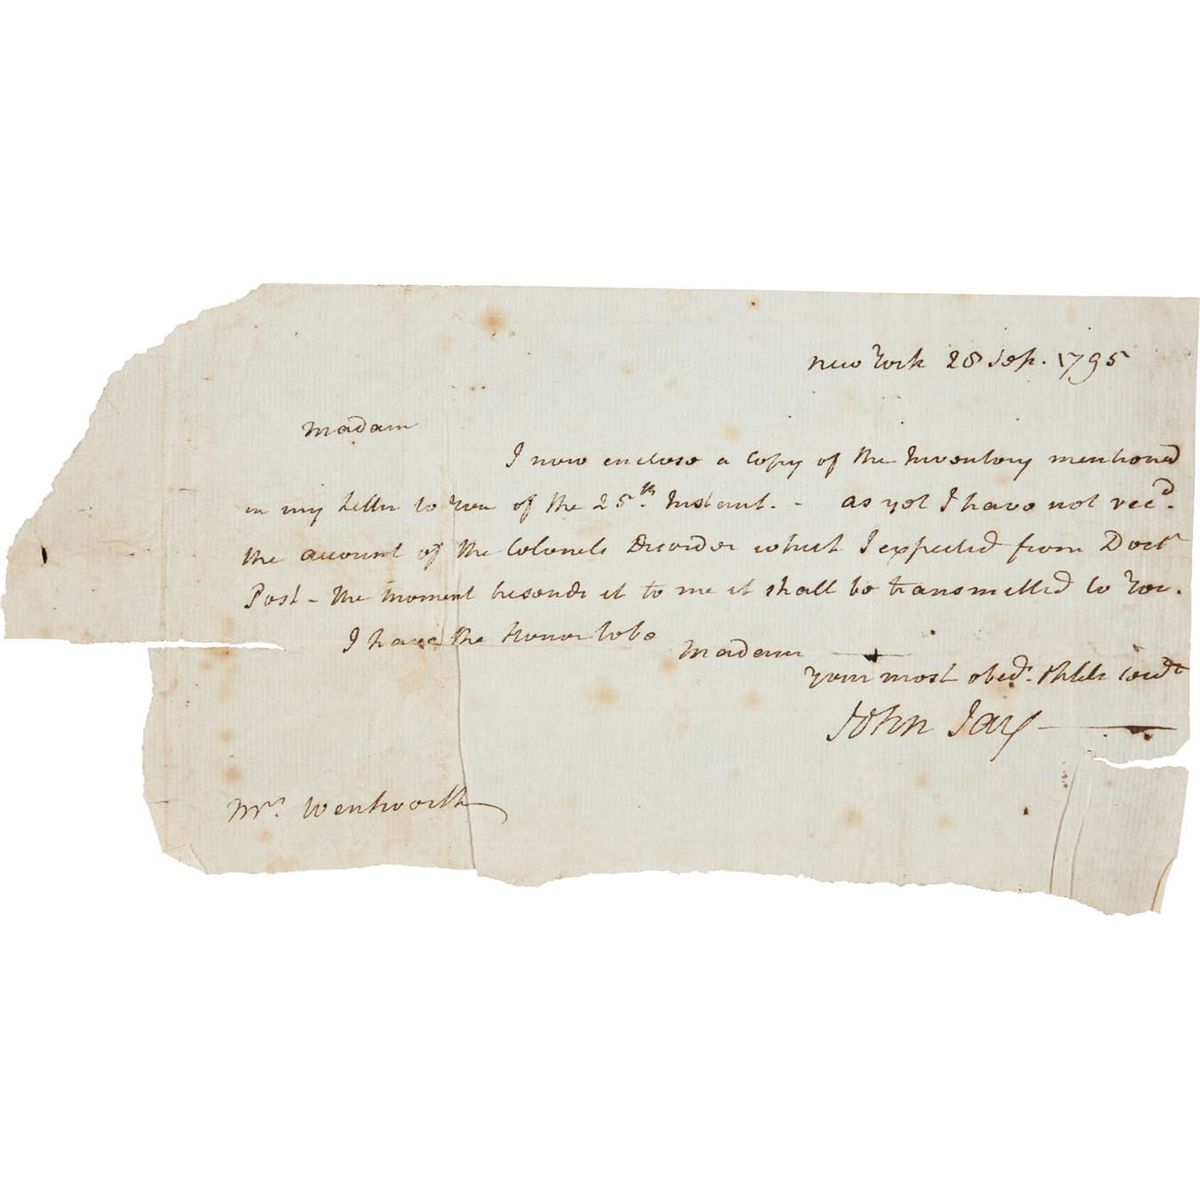 New York 28 Sep. 1795
Madam
I now enclose a Copy of the Inventory mentioned
in my Letter to You of the 25th. Instant. - as yet I have not recd.
the account of the Colonels Disorder which I expected from Doctr
Post - the moment he sends it to me it shall be transmitted to You.
I have the Honor to be
Madam
Your most obedt. & hble Servt
John Jay
Mrs. Wentworth